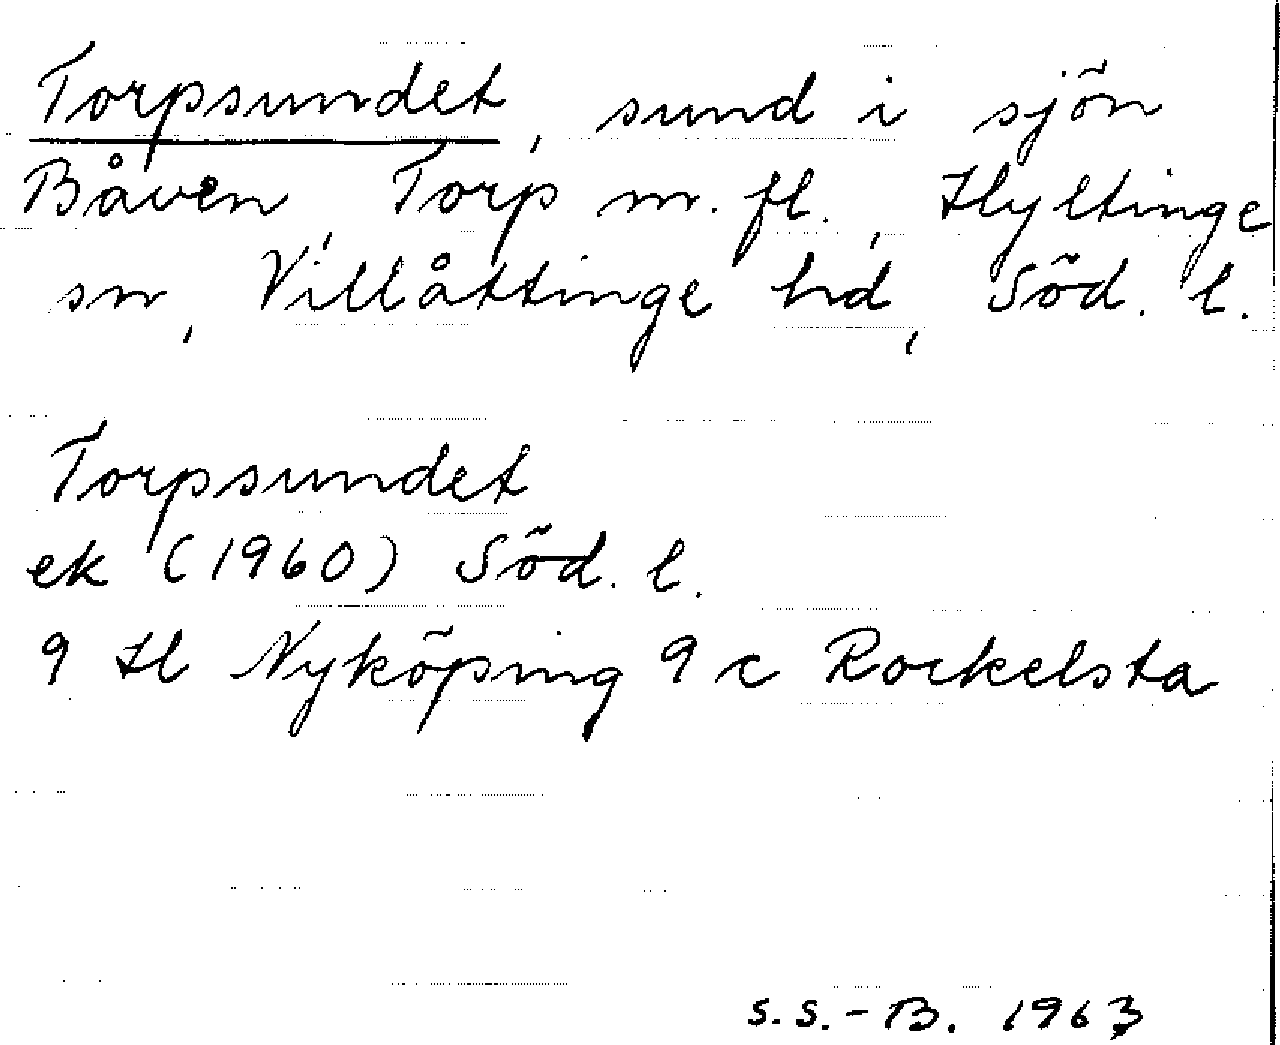 Torpsundet, sund i sjön
Båven, Torp m. fl., Hyltinge
sn, Villåttinge hd, Söd. l.
Torpsundet
ek (1960) Söd. l.
9 H Nyköping 9 c Rockelsta
S.S.-B. 1963